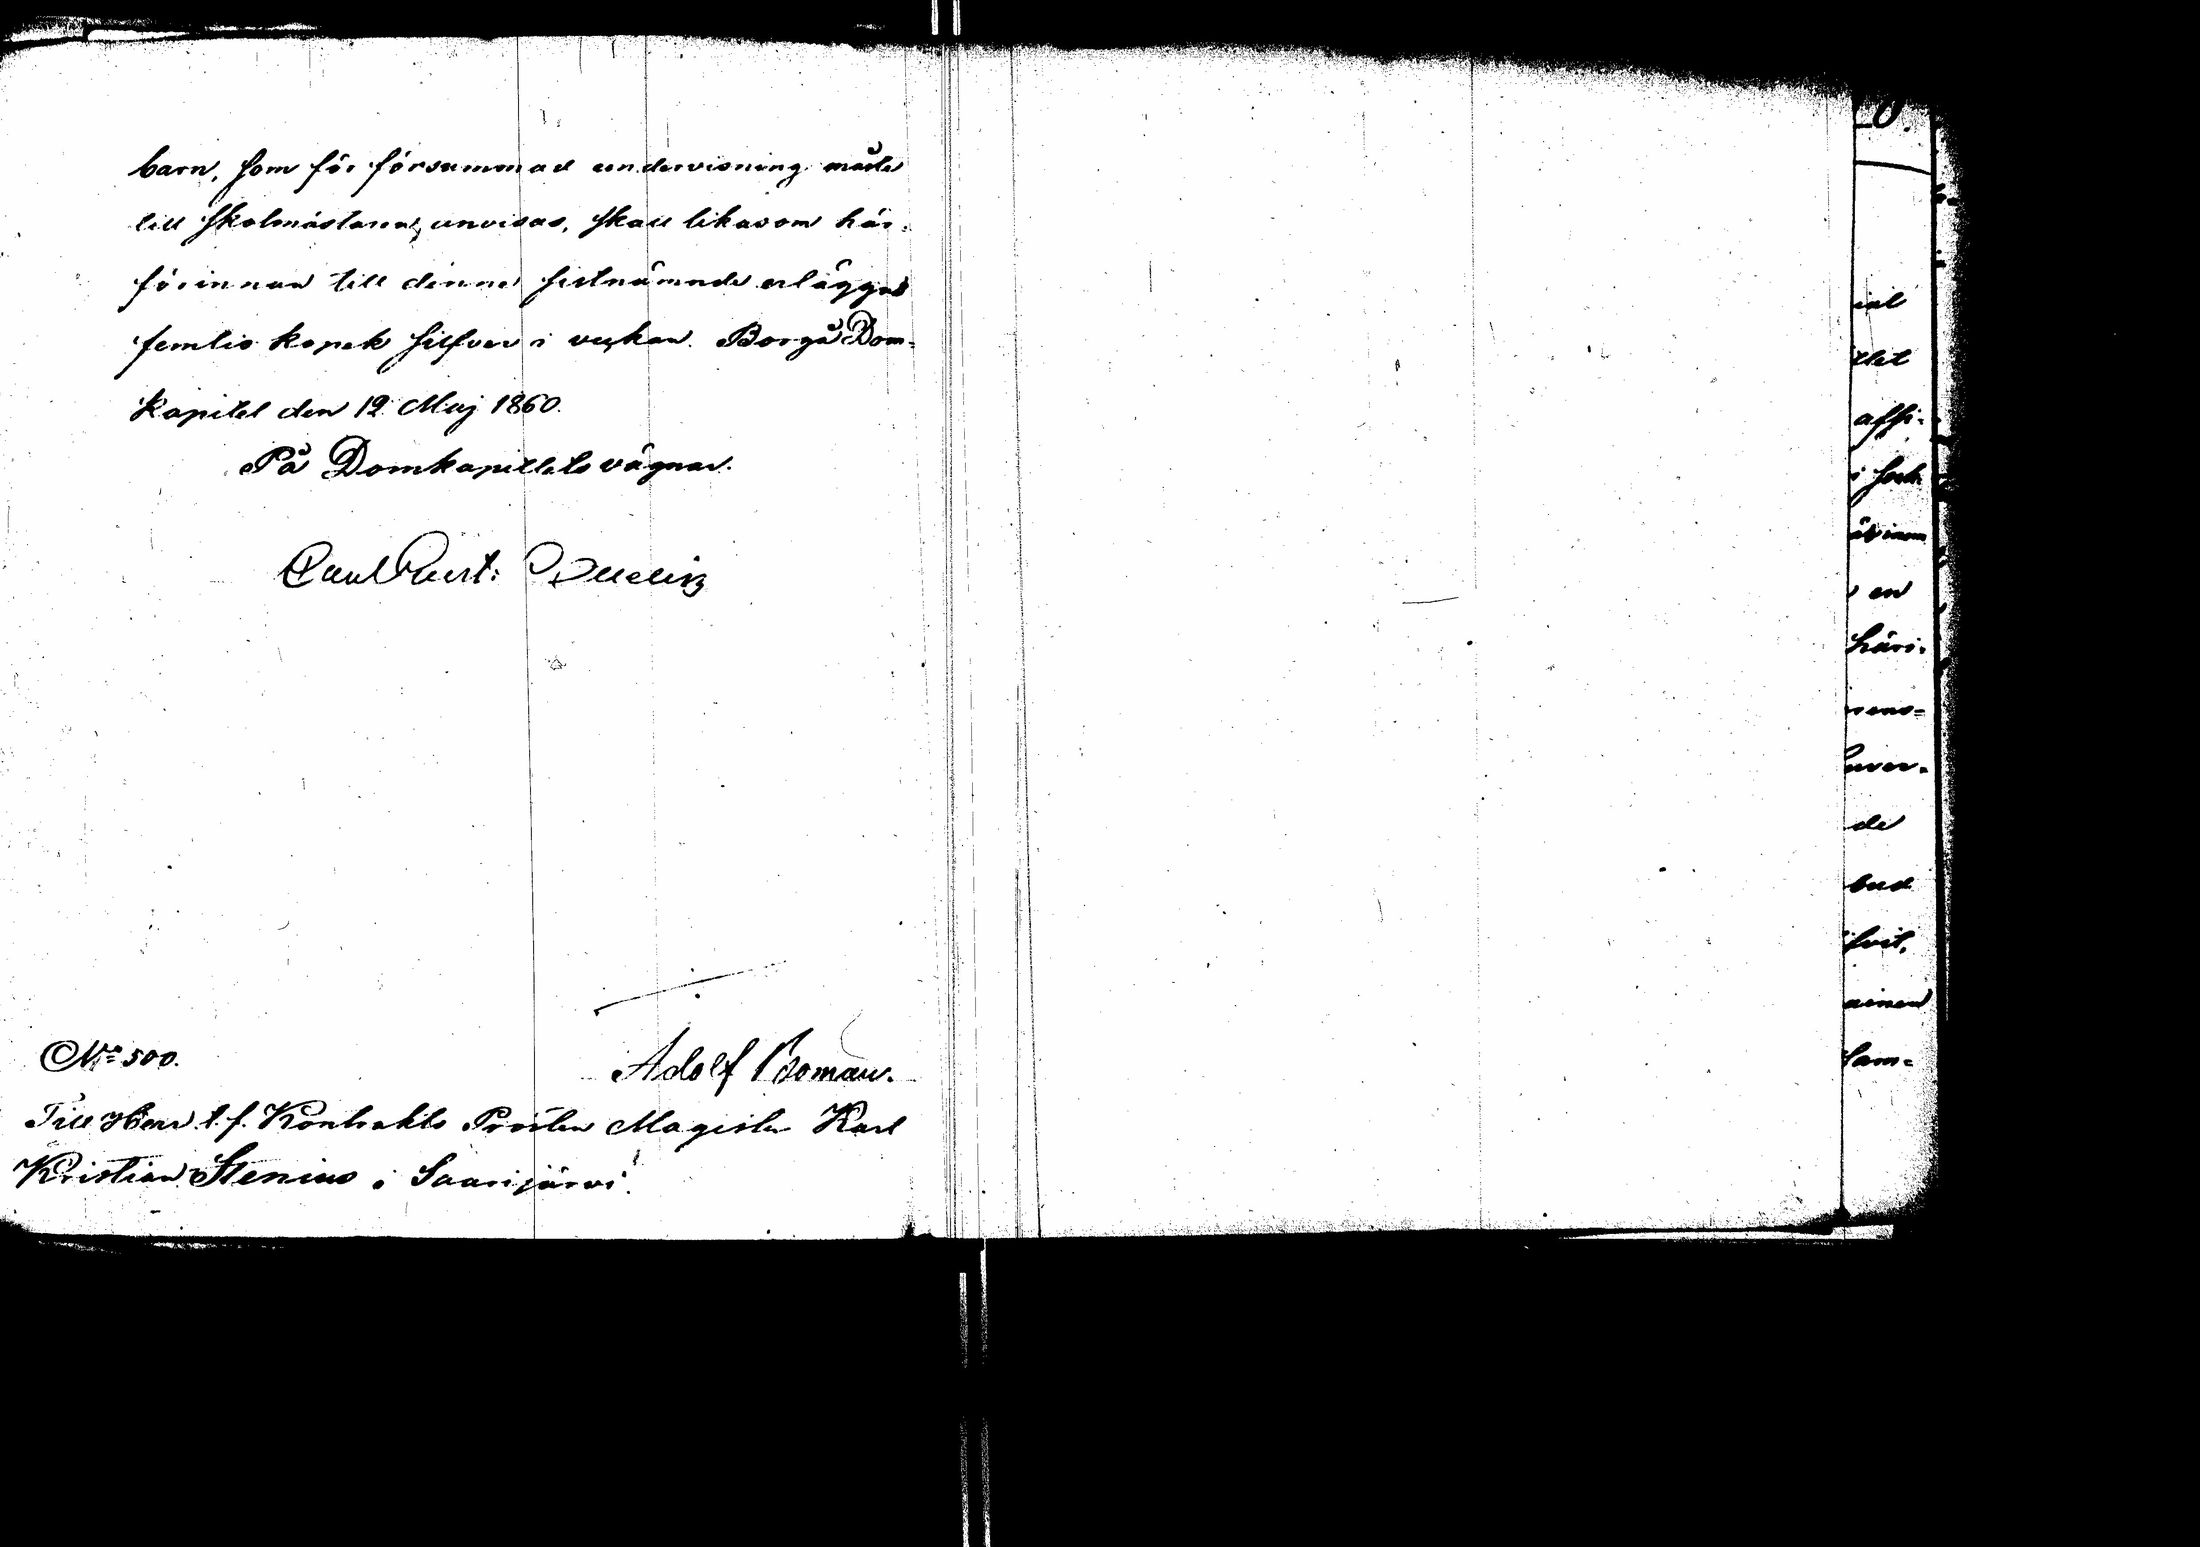 barn, som för försummad undervisning måste
till Skolmästaren, anvisas, skall likasom här-
förinnan till denne sistnämnde erläggas
femtio kopek silfver i veckan. Borgå Dom-
kapitel den 12 Maj 1860.
På Domkapitlets vägnar.
Carl
No 500.
Adolf Boman.
Till Herr t.f. Kontrakts Prosten Magister Karl
Kristian Stenius i Saarijärvi.
affi-
en
häri-
de
bud